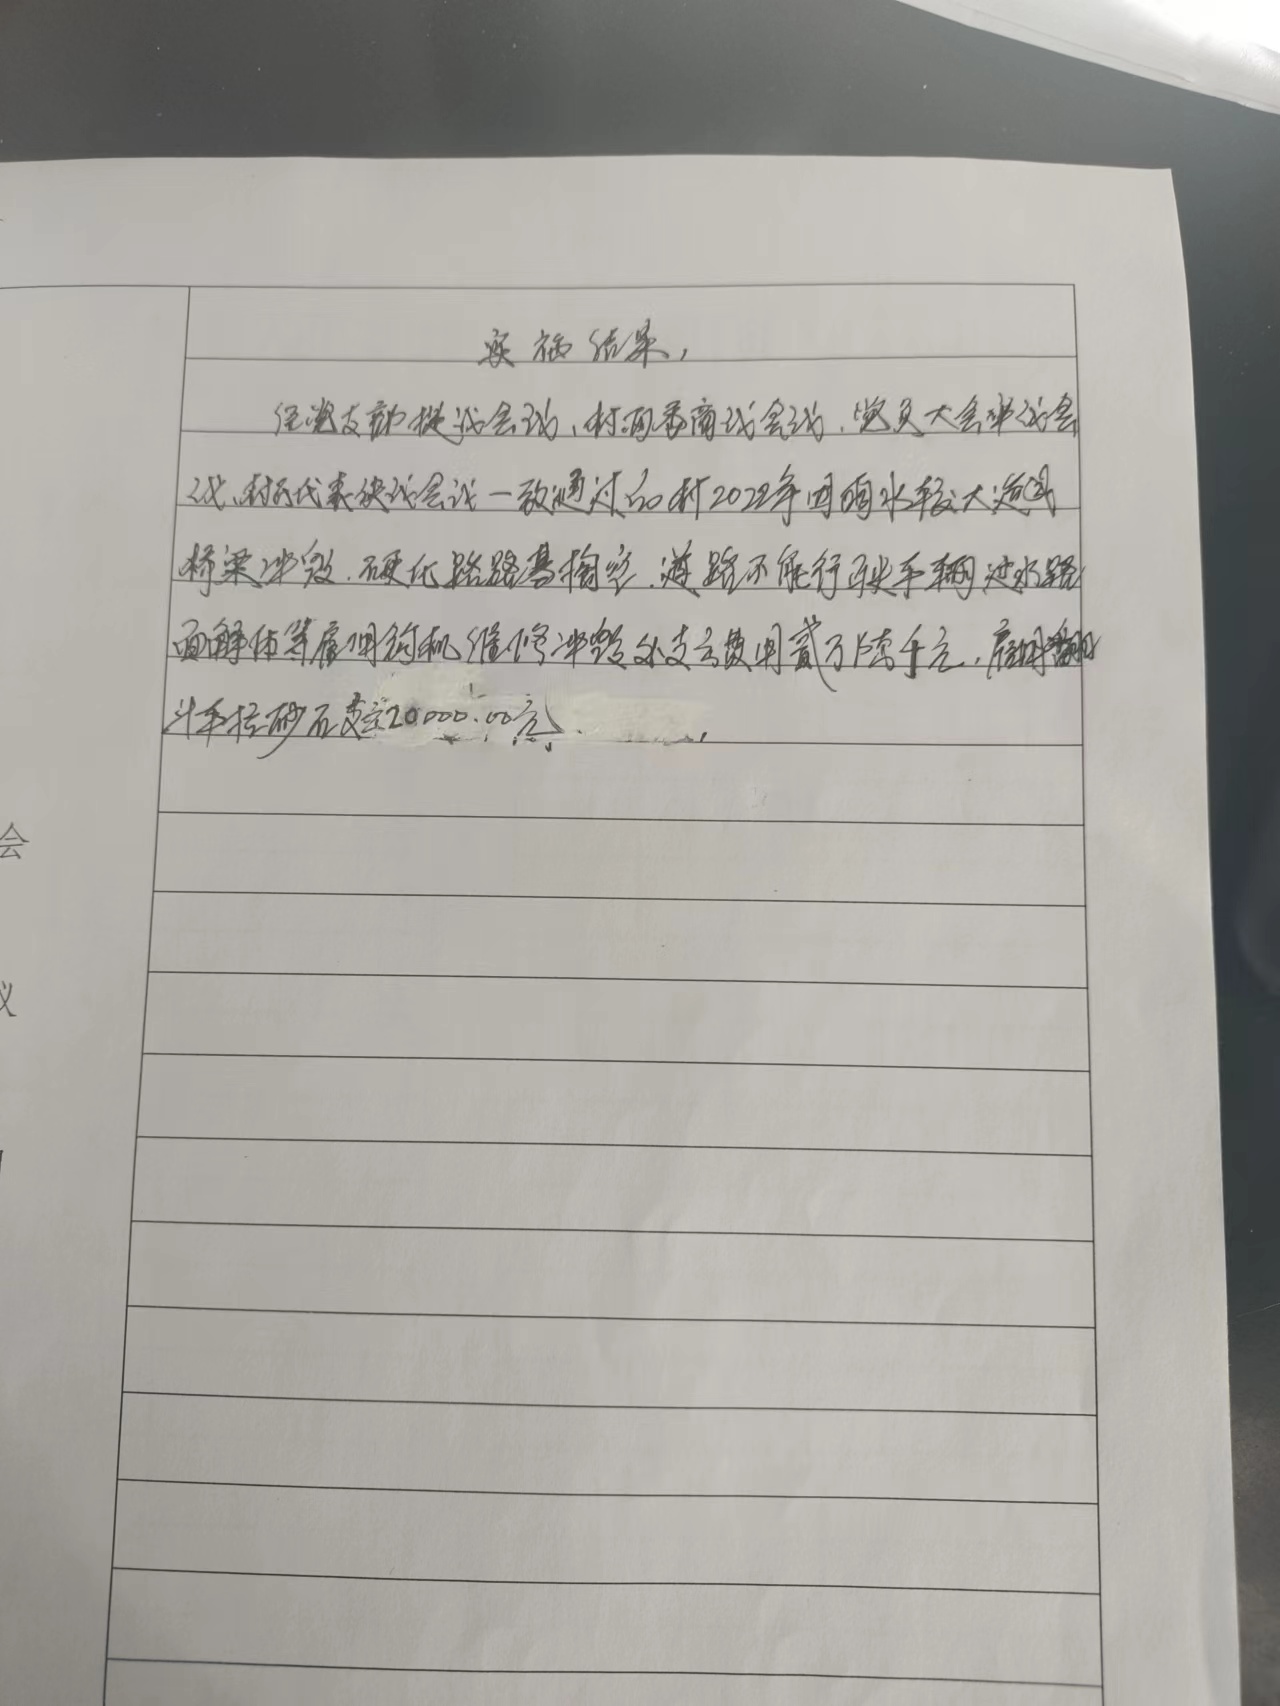 实施结果,
经党支部提议会议、村两委商议会议、党员大会审议会
议、村民代表决议会议一致通过 村2022年因雨水较大造成
桥梁冲毁、硬化路路基掏空、道路不能行驶车辆过水路
面解体等雇用钩机维修冲毁处支出费用贰万陆千元,雇用翻
斗车拉砂石支出20000.00元
会
议